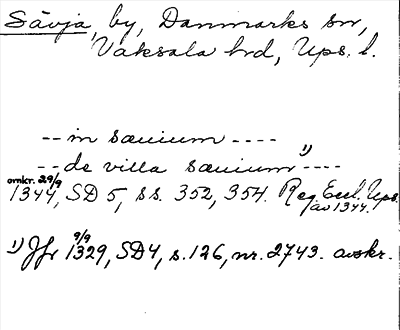 Sävja, by, Danmarks sn,
Vaksala hrd, Ups. l.
-- in sæuium ----
-- de villa sæuium ¹⁾ ----
omkr. 29/9
1344, SD 5, ss. 352, 354. Reg. Eccl. Ups.
av 1344.
¹⁾ Jfr 9/9 1329, SD4, s. 126, nr. 2743. avskr.